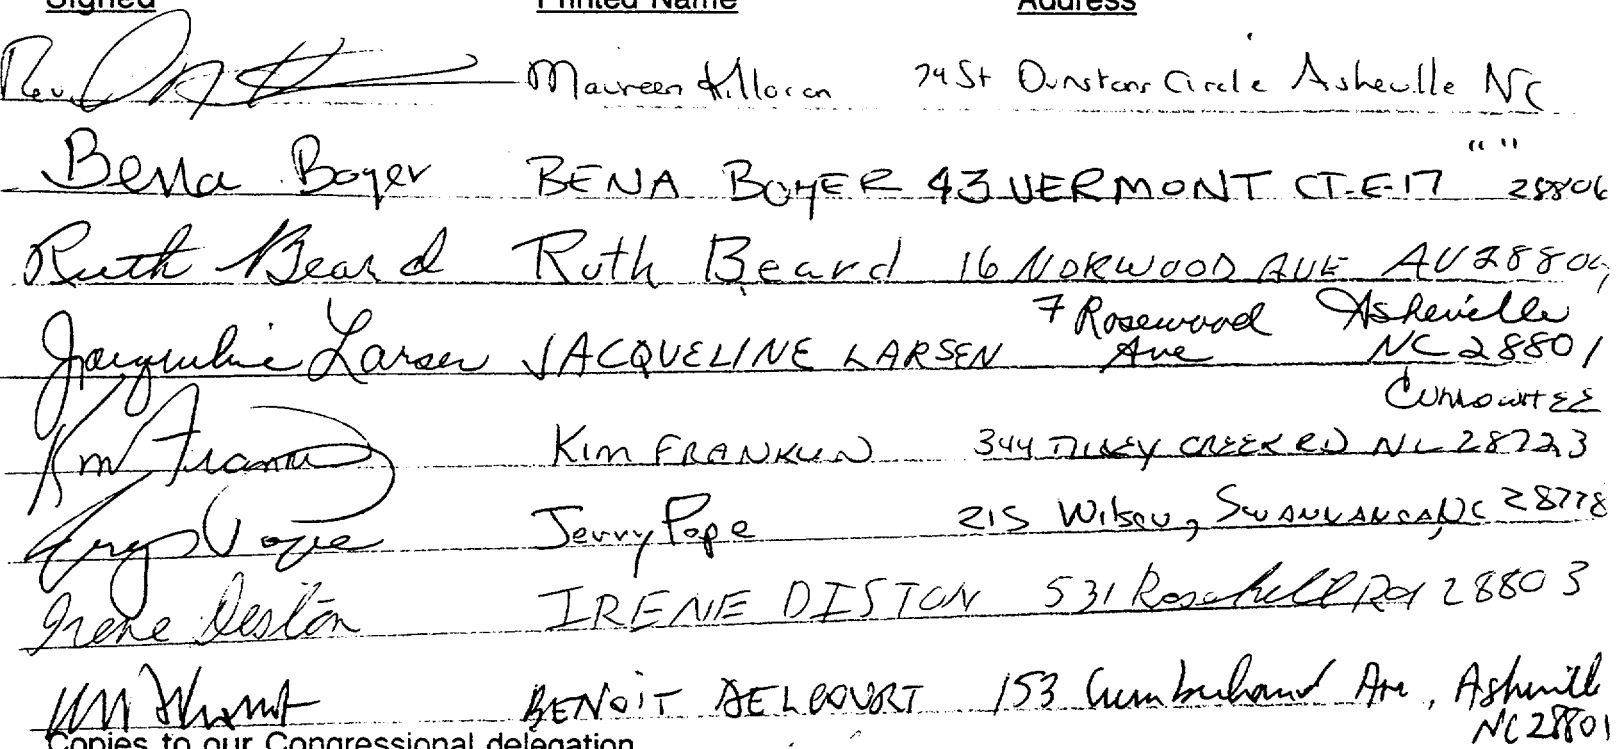 Signed Printed Name Address
Rev. Maureen Killoran 74 St Dunstans Circle Asheville NC
Bena Boyer BENA BOYER 43 VERMONT CT-E-17 " " 28806
Ruth Beard Ruth Beard 16 NORWOOD AVE AV 28804
Jacqueline Larsen JACQUELINE LARSEN 7 Rosewood Ave Asheville NC 28801
Kim Franklin KIM FRANKLIN 344 TILLEY CREEK RD CULLOWHEE NC 28723
Jerry Pope Jerry Pope 215 Wilson, SWANNANOA, NC 28778
Irene Diston IRENE DISTON 531 Rosehill Rd 28803
BENOIT DELCOURT 153 Cumberland Ave, Asheville NC 28801
Copies to our Congressional delegation